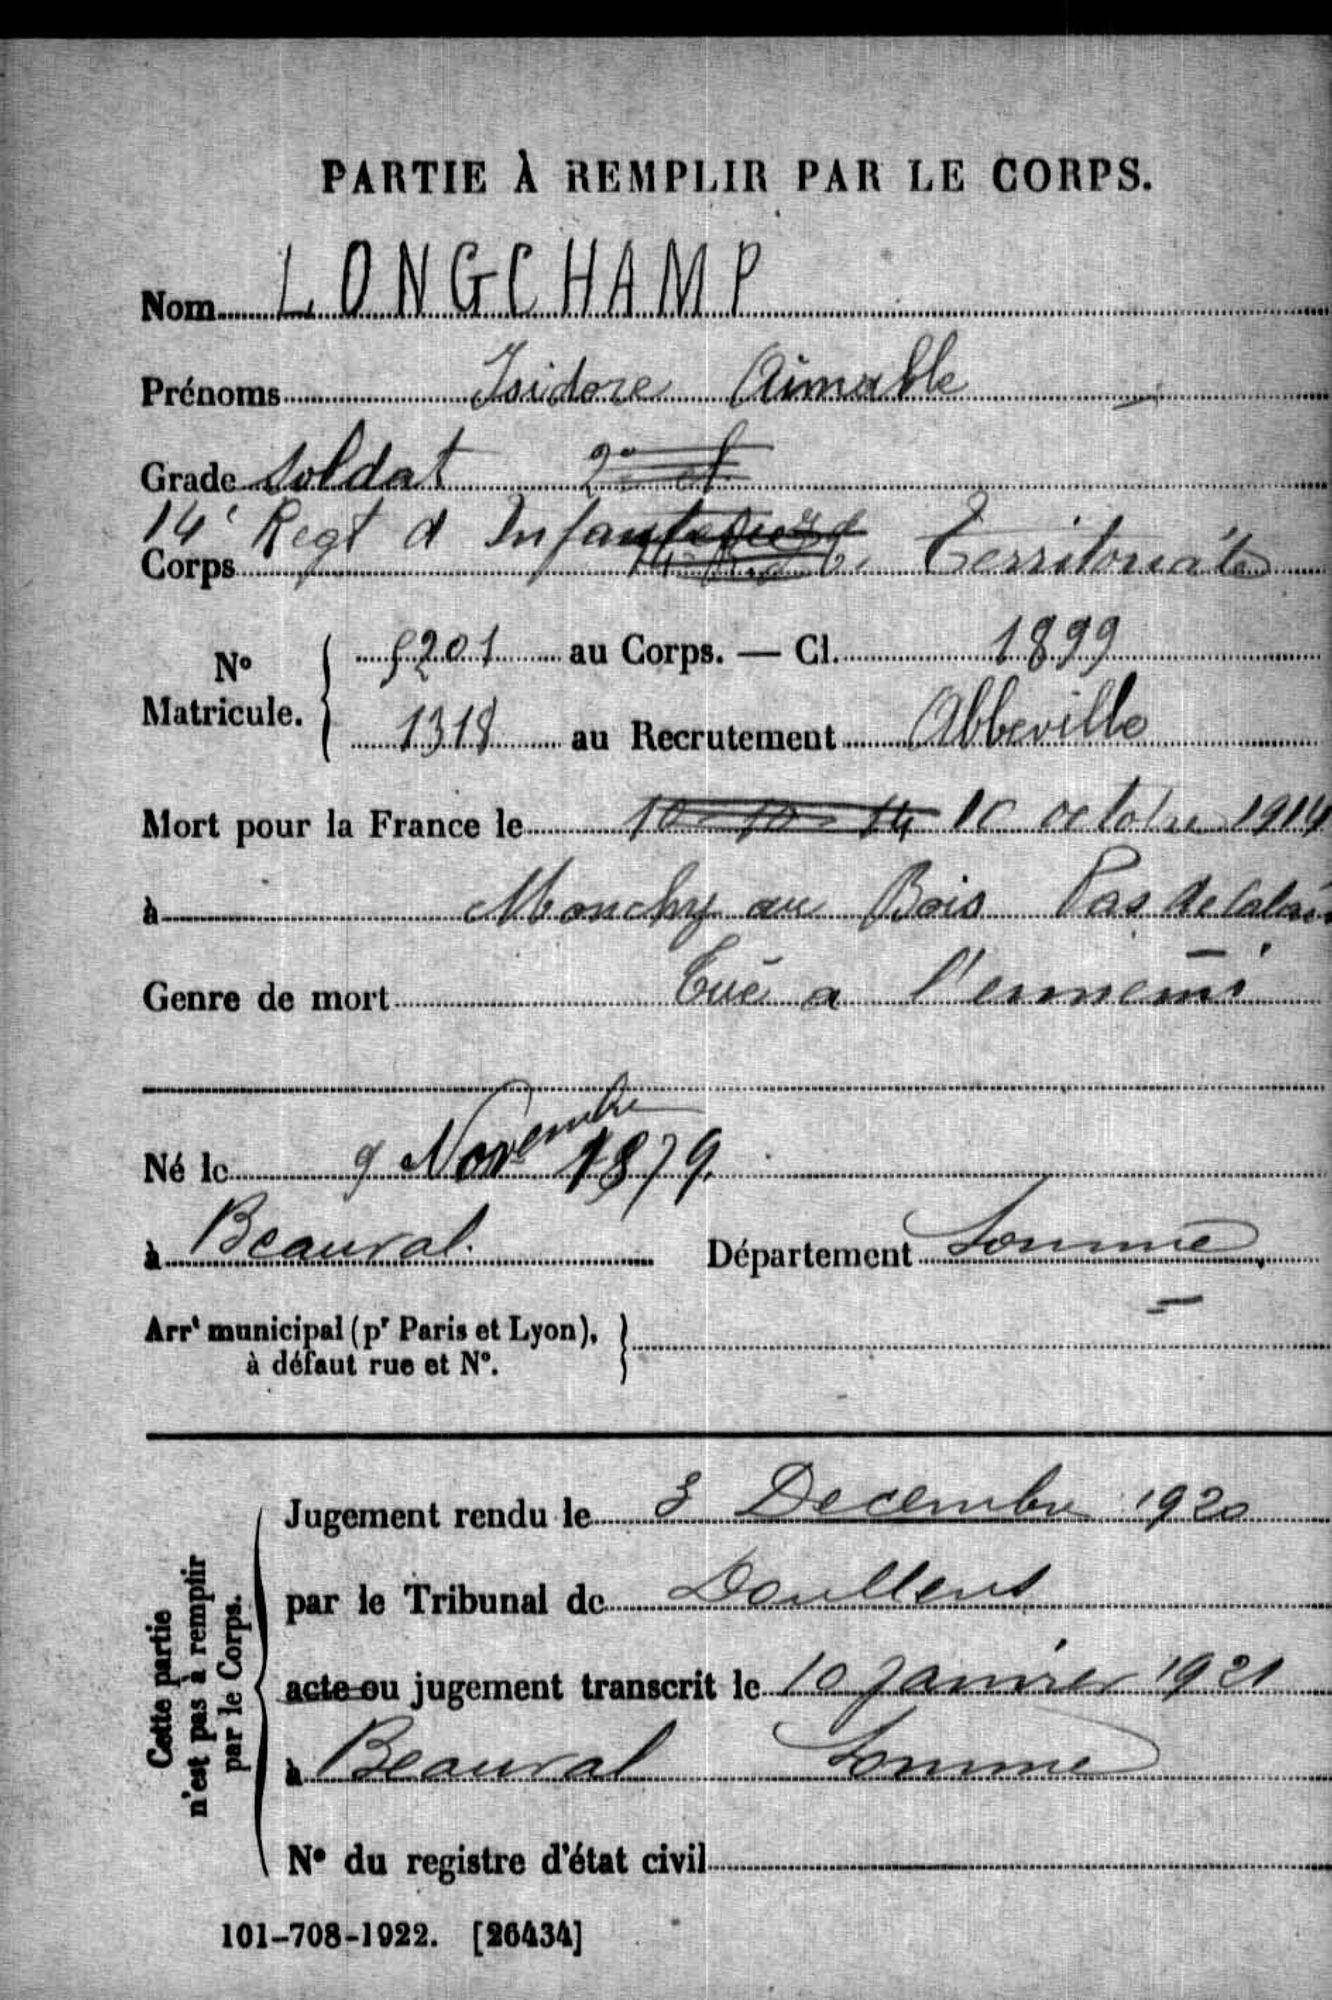 PARTIE À REMPLIR PAR LE CORPS.
Nom LONGCHAMP
Prénoms Isidore Aimable
Grade soldat 2e cl
14e Regt d Infanterie Territoriale
Corps 14
N° Matricule. 5201 au Corps. — Cl. 1899
1318 au Recrutement Abbeville
Mort pour la France le 10-10-14 10 octobre 1914
à Monchy au Bois Pas de Calais
Genre de mort Tué a l'ennemi
Né le 9 Novembre 1879.
à Beauval. Département Somme
Arrt municipal (pr Paris et Lyon),
à défaut rue et N°.
Cette partie
n'est pas à remplir
par le Corps.
Jugement rendu le 3 Decembre 1920
par le Tribunal de Doullens
acte ou jugement transcrit le 10 janvier 1921
à Beauval Somme
N° du registre d'état civil
101-708-1922. [26434]